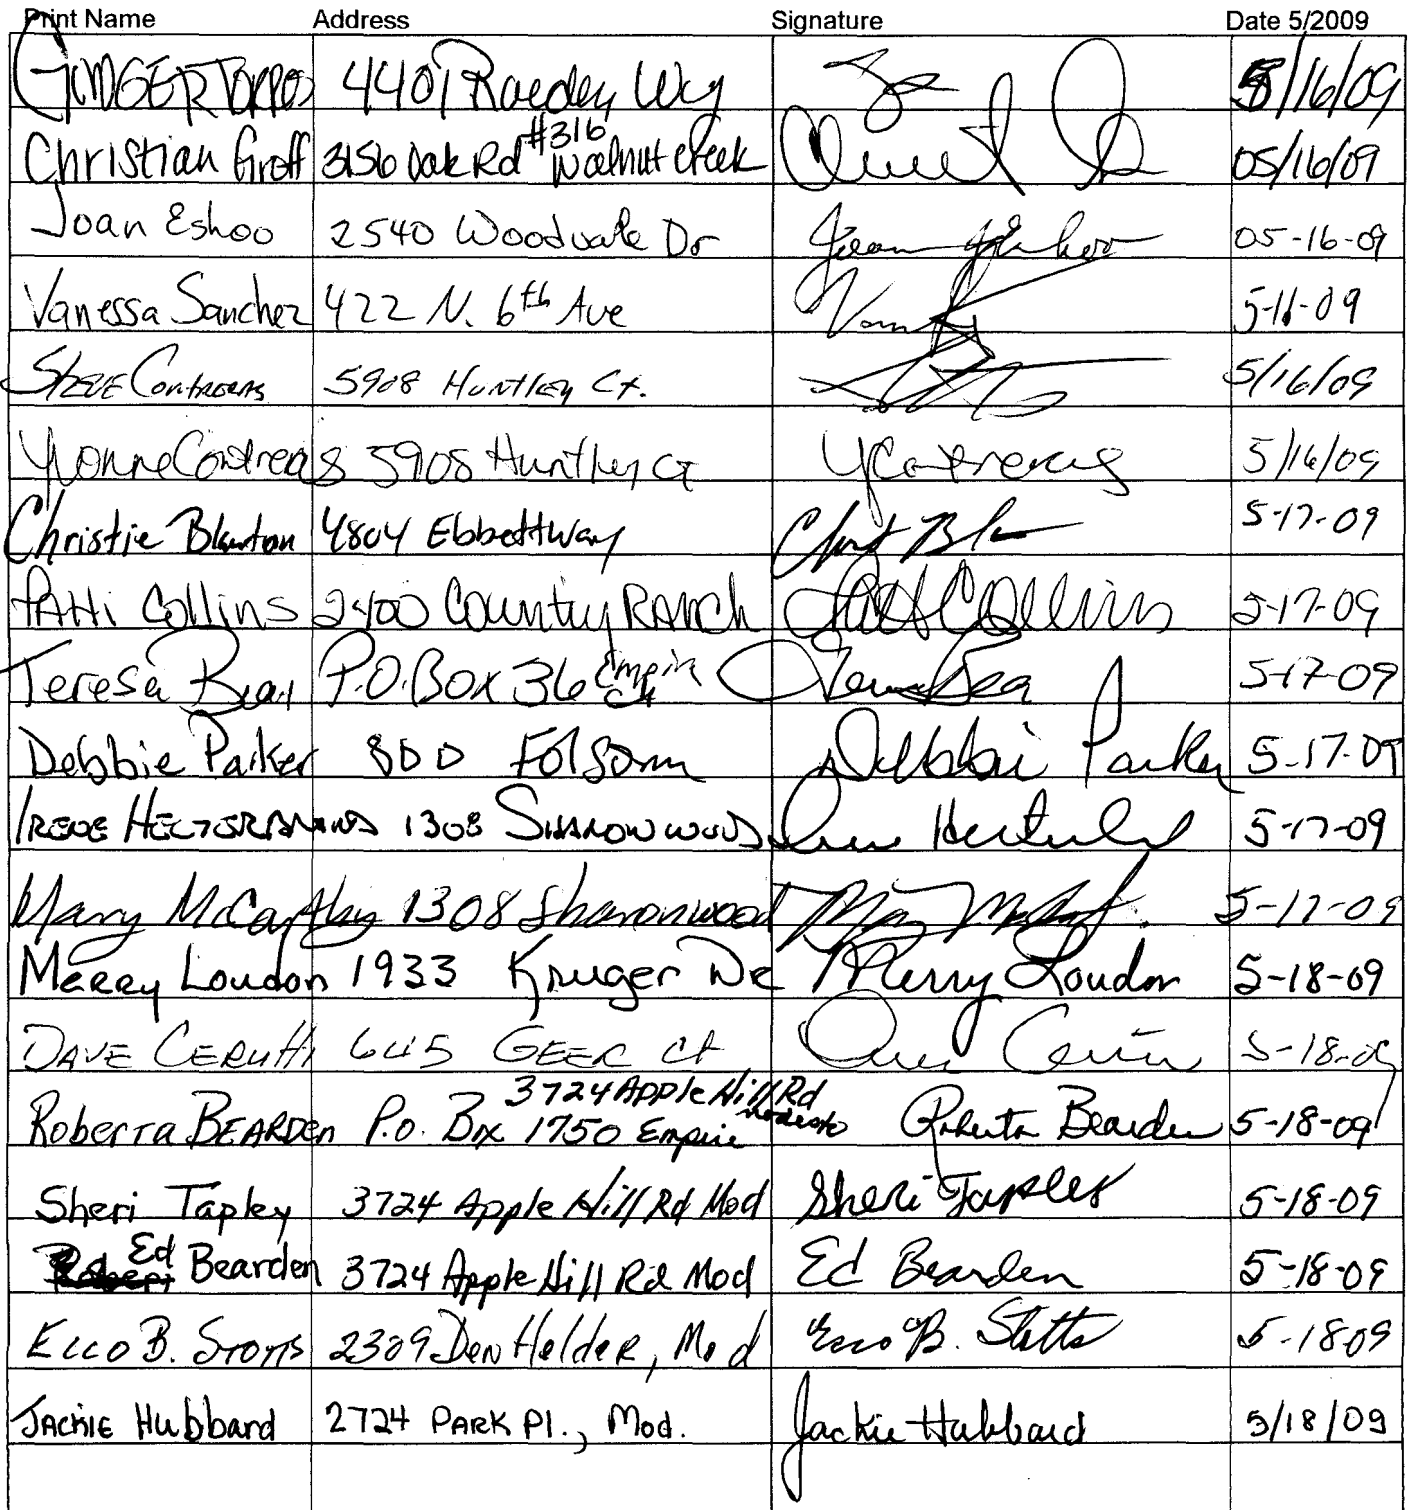 Print Name Address Signature Date 5/2009
GINGER TORRES 4401 Raeden Wy 5/16/09
#316
Christian Groff 3156 Oak Rd Walnut Creek 05/16/09
Joan Eshoo 2540 Woodvale Dr 05-16-09
Vanessa Sanchez 422 N. 6th Ave 5-11-09
STEVE CONTRERAS 5908 HUNTLEY Ct. 5/16/09
Yvonne Contreras 5908 Huntley Ct YContreras 5/16/09
Christie Blanton 4804 Ebbett Way 5-17-09
PAtti Collins 2400 Country RANch Patti Collins 5-17-09
Teresa Bear P.O. Box 36 Empire CA 5-17-09
Debbie Parker 800 Folsom Debbie Parker 5-17-09
IRENE 1308 SHARONWOOD 5-17-09
Mary McCarthy 1308 Sharonwood 5-17-09
MERRY Loudon 1933 Kruger DR Merry Loudon 5-18-09
DAVE CERUTTI 645 GEER Ct 5-18-09
3724 Apple Hill Rd Modesto
Roberta BEARDEN P.O. Box 1750 Empire Roberta Bearden 5-18-09
Sheri Tapley 3724 Apple Hill Rd Mod Sheri Tapley 5-18-09
Ed Bearden 3724 Apple Hill Rd Mod Ed Bearden 5-18-09
Ecco B. STOTTS 2309 Den Helder, Mod Ecco B. Stotts 5-18-09
JACKIE Hubbard 2724 PARK Pl., Mod. Jackie Hubbard 5/18/09